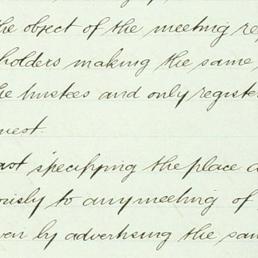 the object of the meeting re
holders making the same
he trustees and only registe
uest.
ast specifying the place a
ously to any meeting of
ven by advertising the sam